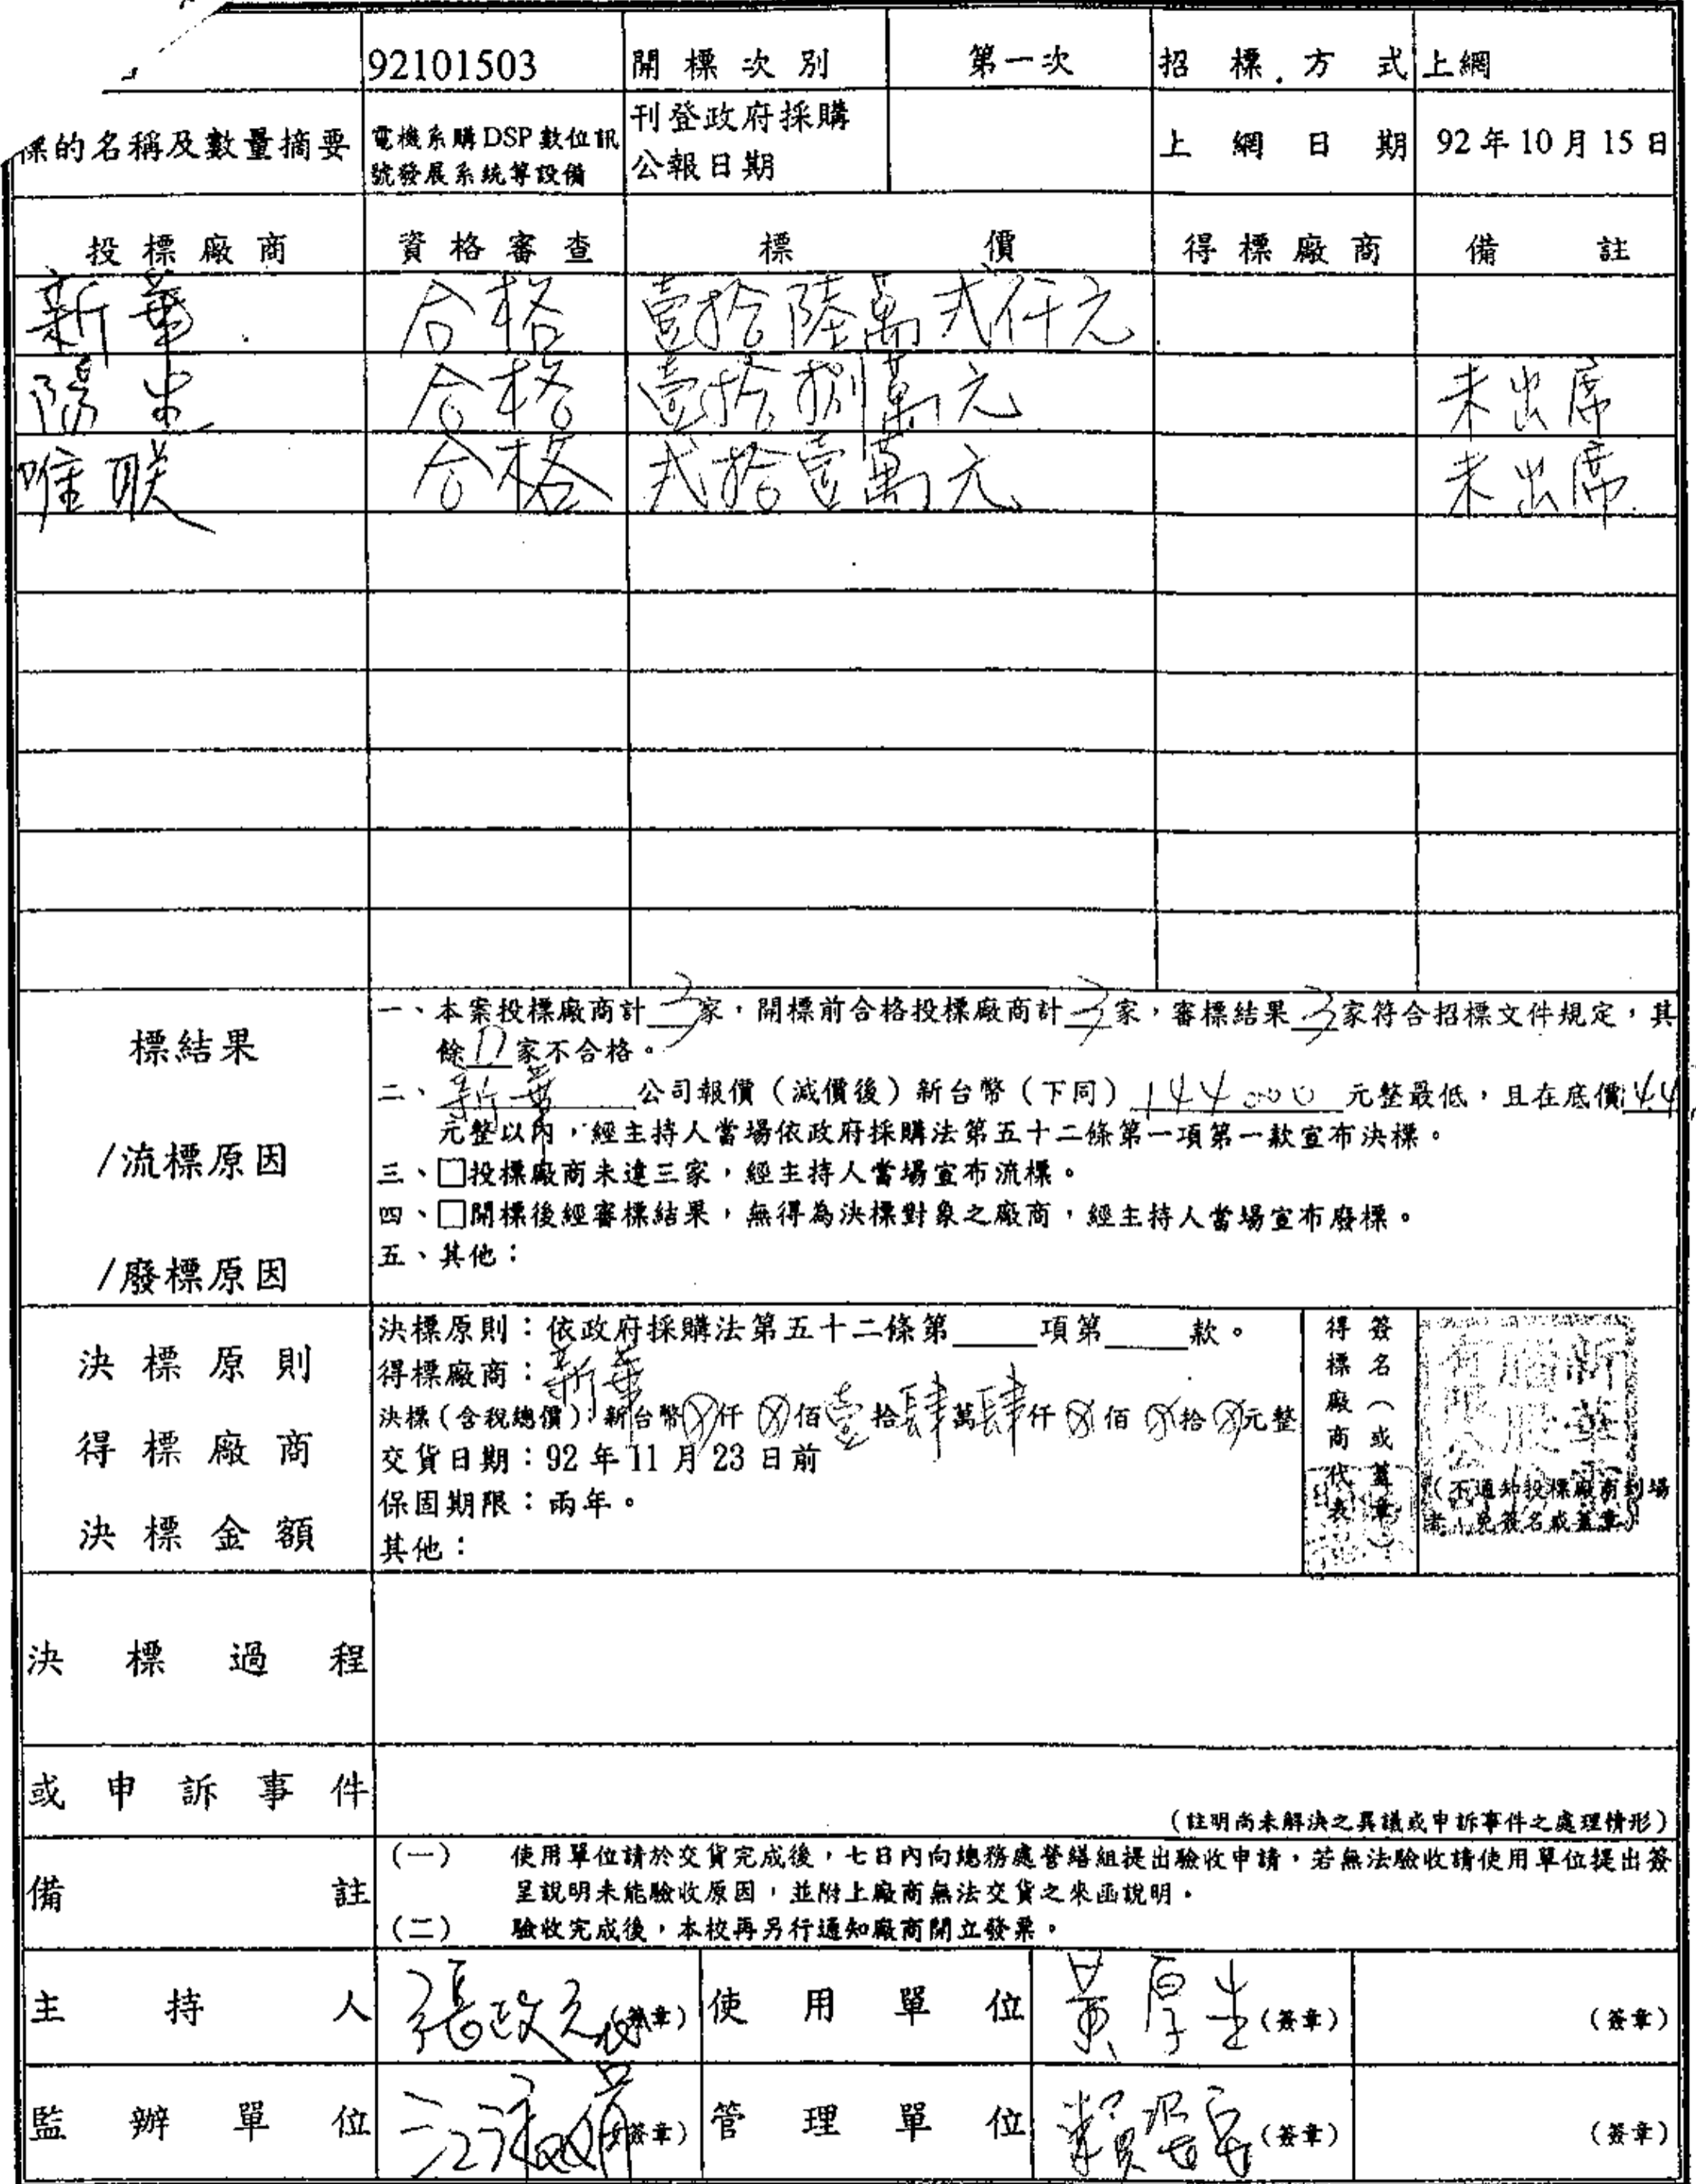 92101503 開標次別 第一次 招標方式 上網
標的名稱及數量摘要 電機系購DSP數位訊號發展系統等設備 刊登政府採購公報日期 上網日期 92年10月15日
投標廠商 資格審查 標價 得標廠商 備註
新華 合格 壹拾陸萬弍仟元
陽忠 合格 壹拾捌萬元 未出席
唯联 合格 弍拾壹萬元 未出席
標結果
/流標原因
/廢標原因
一、本案投標廠商計3家,開標前合格投標廠商計3家,審標結果3家符合招標文件規定,其
餘0家不合格。
二、新華公司報價(減價後)新台幣(下同)144000元整最低,且在底價
元整以內,經主持人當場依政府採購法第五十二條第一項第一款宣布決標。
三、□投標廠商未達三家,經主持人當場宣布流標。
四、□開標後經審標結果,無得為決標對象之廠商,經主持人當場宣布廢標。
五、其他:
決標原則
得標廠商
決標金額
決標原則:依政府採購法第五十二條第____項第____款。
得標廠商:新華
決標(含稅總價):新台幣⊗仟⊗佰壹拾肆萬肆仟⊗佰⊗拾⊗元整
交貨日期:92年11月23日前
保固期限:兩年。
其他:
得標廠商代表
簽名(或蓋章)
新華電腦股份有限公司
(不通知投標廠商到場
者,免簽名或蓋章)
決標過程
或申訴事件
(註明尚未解決之異議或申訴事件之處理情形)
備註
(一) 使用單位請於交貨完成後,七日內向總務處營繕組提出驗收申請,若無法驗收請使用單位提出簽
呈說明未能驗收原因,並附上廠商無法交貨之來函說明。
(二) 驗收完成後,本校再另行通知廠商開立發票。
主持人 張政元 (簽章) 使用單位 黃厚生 (簽章) (簽章)
監辦單位 (簽章) 管理單位 (簽章) (簽章)